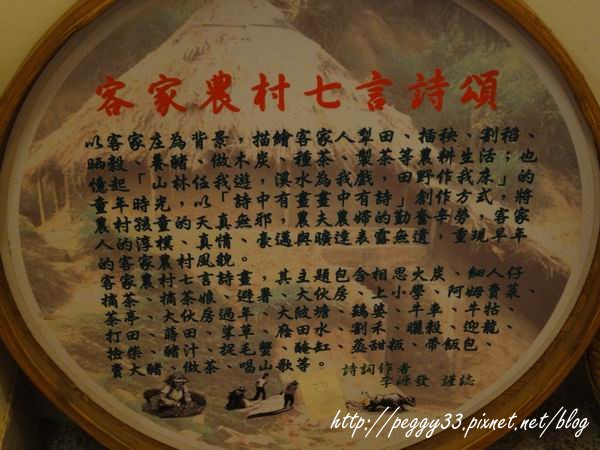 客家農村七言詩頌
以客家庄為背景,描繪客家人犁田、插秧、割稻、
晒穀、養豬、做木炭、種茶、製茶等農耕生活;也
憶起「山林任我遊,溪水為我戲,田野作我床」的
童年時光,以「詩中有畫畫中有詩」創作方式,將
農村孩童的天真無邪,農夫農婦的勤奮辛勞,客家
人的淳樸、真情、豪邁與曠達表露無遺,重現早年
的客家農村風貌。
客家農村七言詩畫,其主題包含相思火炭、細人仔
摘茶、摘茶娘、避暑、大伙房、上小學、阿姆賣菜、
茶亭、大伙房過年、大陂塘、鷄婆、牛車、牛牯、
打田、蒔田、挲草、廢田水、割禾、曬穀、迎龍、
撿柴、豬汁、捉毛蟹、醃缸、蒸甜粄、帶飯包、
賣大豬、做茶、唱山歌等。
詩詞作者
李源發 謹誌
http://peggy33.pixnet.net/blog